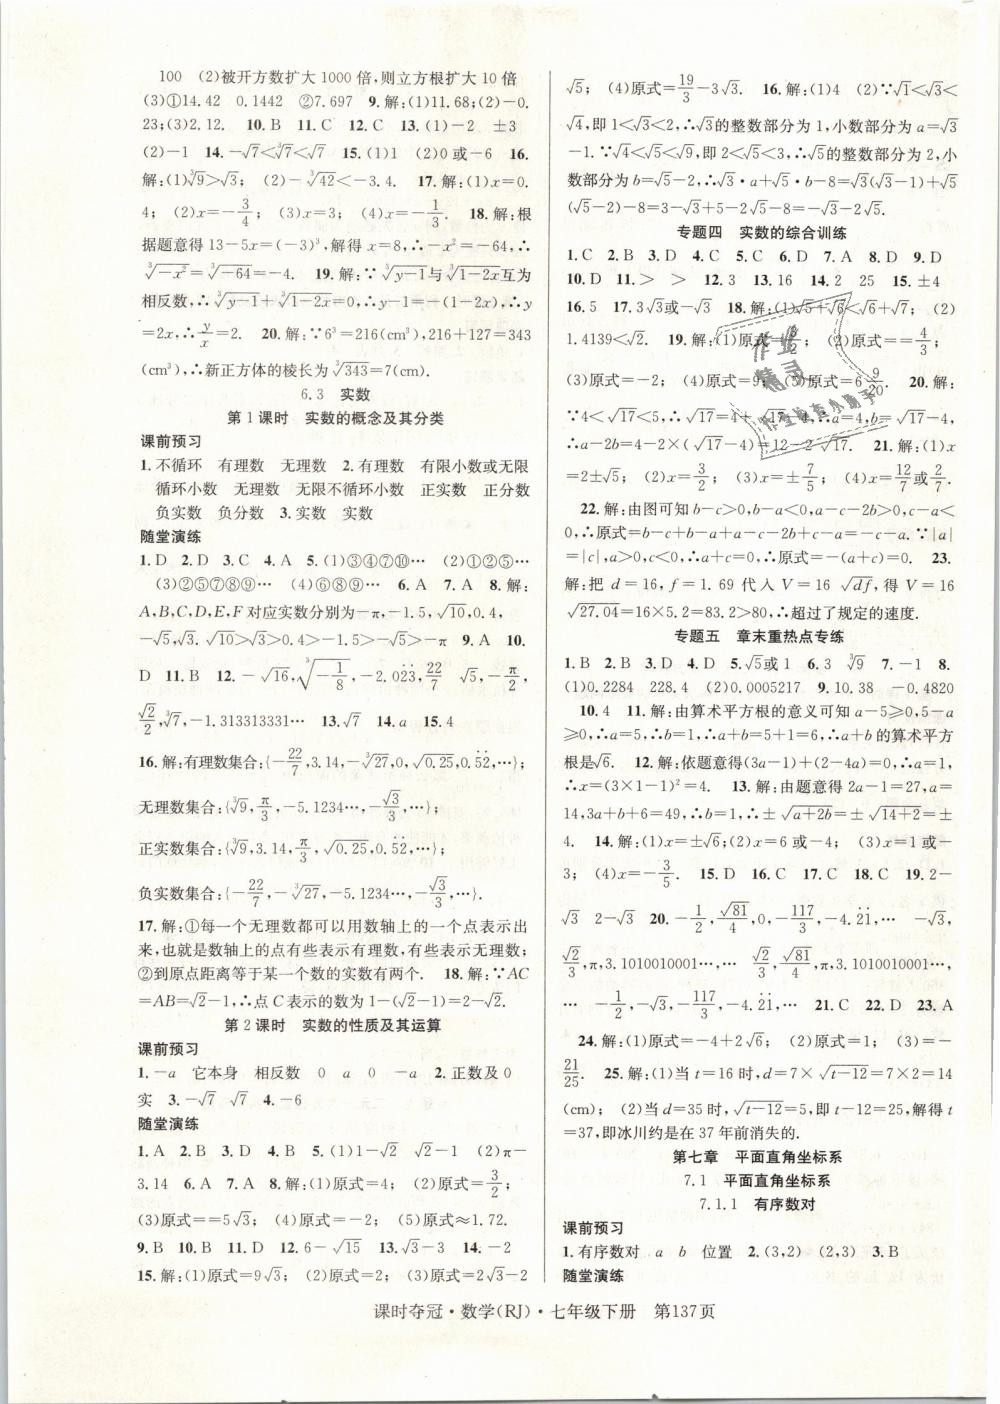 100 (2)被开方数扩大 1000 倍,则立方根扩大 10 倍
(3)①14.42 0.1442 ②7.697 9.解:(1)11.68;(2)-0.
23;(3)2.12. 10.B 11.C 12.C 13.(1)-2 ±3
(2)-1 14.-√7<∛7<√7 15.(1)1 (2)0或-6 16.
解:(1)∛9>√3; (2)-∛42<-3.4. 17.解:(1)x=0.
4; (2)x=-3/4; (3)x=3; (4)x=-1/3. 18.解:根
据题意得 13-5x=(-3)³,解得 x=8,∴-x²=-64,∴
∛(-x²)=∛(-64)=-4. 19.解:∵∛(y-1)与∛(1-2x)互为
相反数,∴∛(y-1)+∛(1-2x)=0,∴y-1=-(1-2x),∴y
=2x,∴y/x=2. 20.解:∵6³=216(cm³),216+127=343
(cm³),∴新正方体的棱长为∛343=7(cm).
6.3 实数
第 1 课时 实数的概念及其分类
课前预习
1.不循环 有理数 无理数 2.有理数 有限小数或无限
循环小数 无理数 无限不循环小数 正实数 正分数
负实数 负分数 3.实数 实数
随堂演练
1.D 2.D 3.C 4.A 5.(1)③④⑦⑩… (2)①②⑤…
(3)②⑤⑦⑧⑨… (4)⑥⑧⑨… 6.A 7.A 8.解:
A,B,C,D,E,F 对应实数分别为-π,-1.5,√10,0.4,
-√5,√3. √10>√3>0.4>-1.5>-√5>-π 9.A 10.
D 11.B 12.-√16,∛(-1/8),-2.0̇23̇,22/7 √5,-π/2,
√2/2,∛7,-1.313313331… 13.√7 14.a 15.4
16.解:有理数集合:{-22/7,3.14,-∛27,0,√0.25,0.5̇2̇,…};
无理数集合:{∛9,π/3,-5.1234…,-√3/3,…};
正实数集合:{∛9,3.14,π/3,√0.25,0.5̇2̇,…};
负实数集合:{-22/7,-∛27,-5.1234…,-√3/3,…}.
17.解:①每一个无理数都可以用数轴上的一个点表示出
来,也就是数轴上的点有些表示有理数,有些表示无理数;
②到原点距离等于某一个数的实数有两个. 18.解:∵AC
=AB=√2-1,∴点 C 表示的数为 1-(√2-1)=2-√2.
第 2 课时 实数的性质及其运算
课前预习
1.-a 它本身 相反数 0 a 0 -a 2.正数及0
实 3.-√7 √7 4.-6
随堂演练
1.A 2.B 3.D 4.B 5.(1)1-√2 √2-1 (2)π-
3.14 6.A 7.A 8.解:(1)原式=4; (2)原式=3/2;
(3)原式==5√3; (4)原式=-2; (5)原式≈1.72.
9.B 10.B 11.D 12.6-√15 13.√3-3 14.-2
15.解:(1)原式=9√3; (2)原式=2; (3)原式=2√3-2
√5; (4)原式=19/3-3√3. 16.解:(1)4 (2)∵√1<√3<
√4,即 1<√3<2,∴√3的整数部分为 1,小数部分为 a=√3
-1.∵√4<√5<√9,即 2<√5<3,∴√5的整数部分为 2,小
数部分为 b=√5-2,∴√3·a+√5·b-8=√3(√3-1)+√5
(√5-2)-8=3-√3+5-2√5-8=-√3-2√5.
专题四 实数的综合训练
1.C 2.B 3.C 4.C 5.C 6.D 7.A 8.D 9.D
10.D 11.> > 12.3 13.16 14.2 25 15.±4
16.5 17.3√3或-√3 18.解:(1)√5+√6<√6+√7; (2)
1.4139<√2. 19.解:(1)原式= (2)原式==4/3;
(3)原式=-2; (4)原式=9; (5)原式=6 9/20. 20.解:
∵4<√17<5,∴√17=4+√17-4,∴a=4,b=√17-
4,∴2a-2b=2×4-2×(√17-4)=12-2√17. 21.解:(1)x
=2±√5; (2)x=3/2; (3)x=±7/5; (4)x=12/7或2/7.
22.解:由图可知 b-c>0,b-a<0,a-c-2b>0,c-a<
0,∴原式=b-c+b-a+a-c-2b+c-a=-c-a.∵|a|
=|c|,a>0,c<0,∴a+c=0,∴原式=-(a+c)=0. 23.
解:把 d=16,f=1.69 代入 V=16√df,得 V=16
√27.04=16×5.2=83.2>80,∴超过了规定的速度.
专题五 章末重热点专练
1.B 2.B 3.D 4.D 5.√5或1 6.3 ∛9 7.-1 8.
(1)0.2284 228.4 (2)0.0005217 9.10.38 -0.4820
10.4 11.解:由算术平方根的意义可知 a-5≥0,5-a
≥0,∴a=5,∴b=1,∴a+b=5+1=6,∴a+b 的算术平方
根是√6. 12.解:依题意得(3a-1)+(2-4a)=0,∴a=1,
∴x=(3×1-1)²=4. 13.解:由题意得 2a-1=27,a=
14,3a+b+6=49,∴b=1,∴±√(a+2b)=±√(14+2)=±
4. 14.解:(1)x=±√6;(2)x=6或-4; (3)x=1或-
3; (4)x=-3/5. 15.D 16.C 17.C 18.C 19.2-
√3 2-√3 20.-1/2,√81/4,0,-117/3,-4.2̇1̇,… -√3,
√2/3,π,3.1010010001…,… √2/3,π,√81/4,3.1010010001…,
… -1/2,-√3,-117/3,-4.2̇1̇,… 21.C 22.D 23.A
24.解:(1)原式=-4+2√6; (2)原式=1; (3)=-
21/25. 25.解:(1)当 t=16 时,d=7×√(t-12)=7×2=14
(cm); (2)当 d=35 时,√(t-12)=5,即 t-12=25,解得 t
=37,即冰川约是在 37 年前消失的.
第七章 平面直角坐标系
7.1 平面直角坐标系
7.1.1 有序数对
课前预习
1.有序数对 a b 位置 2.(3,2) (2,3) 3.B
随堂演练
课时夺冠·数学(RJ)·七年级下册 第137页
作业
精灵